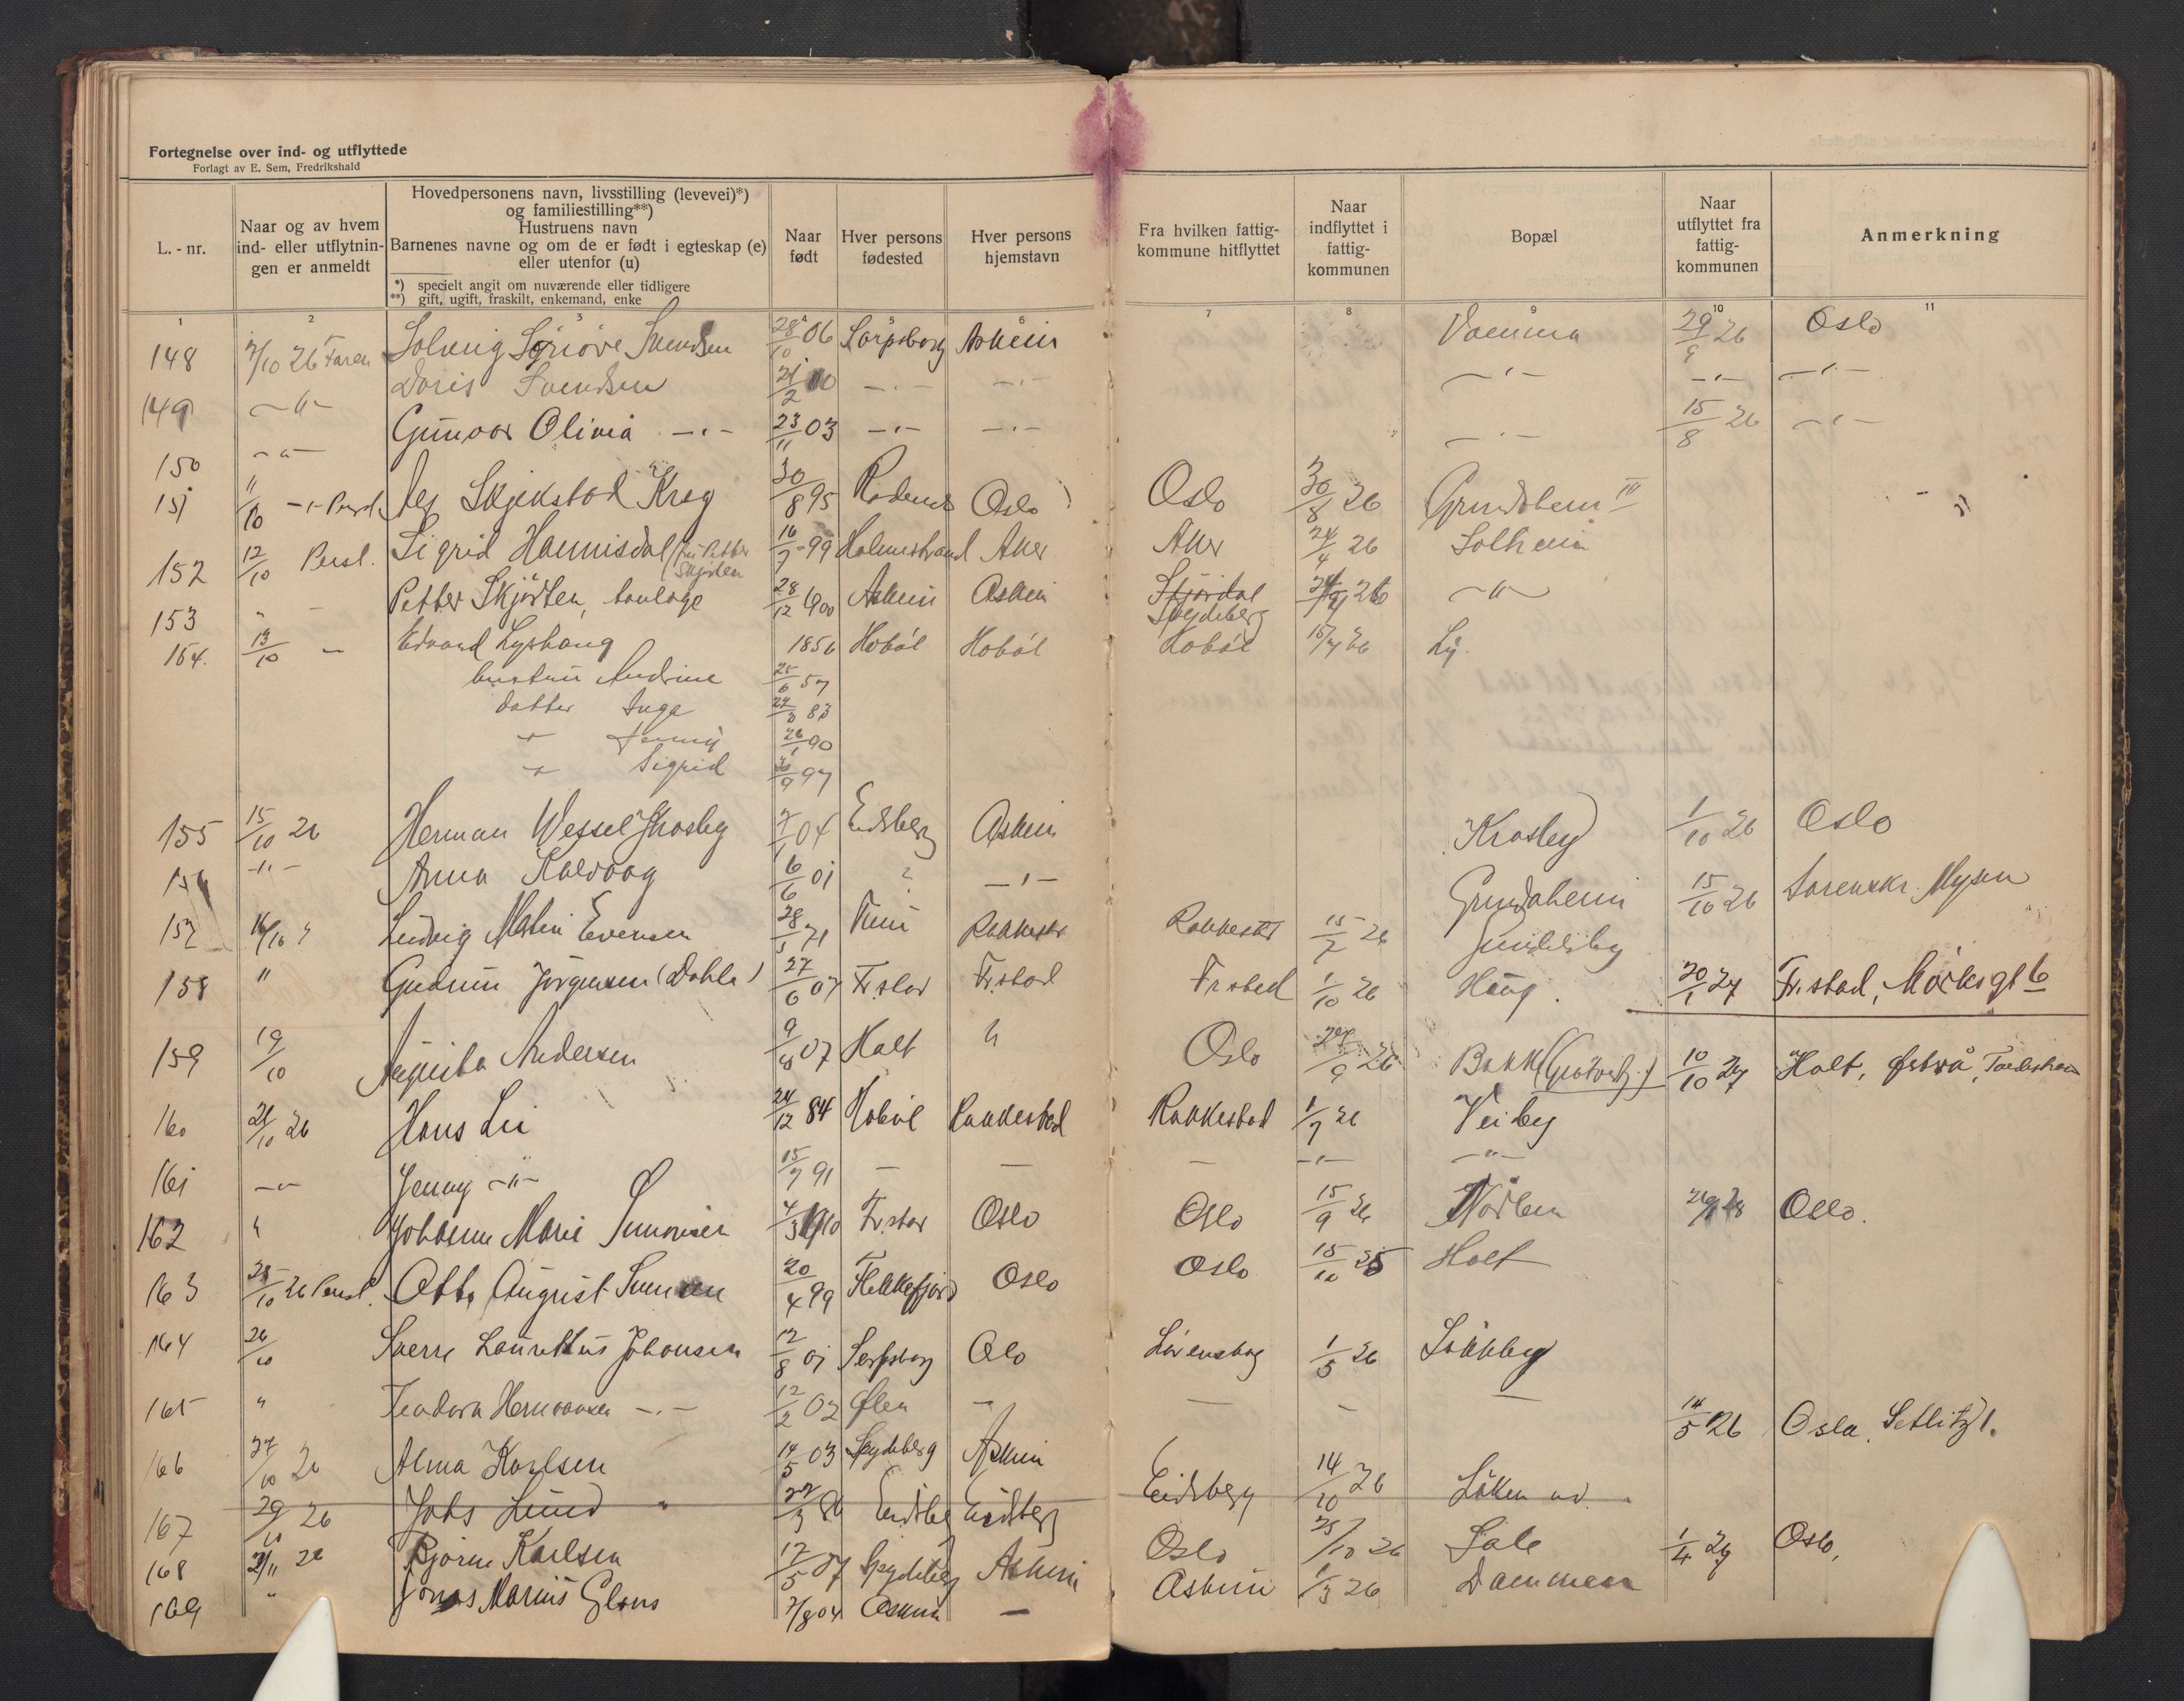 Fortegnelse over ind- og utflyttede
Forlagt av E. Sem, Fredrikshald
L. - nr.
Naar og av hvem ind- eller utflytnin-gen er anmeldt
Hovedpersonens navn, livsstilling (levevei)*)
og familiestilling**)
Hustruens navn
Barnenes navne og om de er født i egteskap (e)
eller utenfor (u)
*) specielt angit om nuværende eller tidligere
**) gift, ugift, fraskilt, enkemand, enke
Naar født
Hver persons fødested
Hver persons hjemstavn
Fra hvilken fattig-kommune hitflyttet
Naar indflyttet i fattig-kommunen
Bopæl
Naar utflyttet fra fattig-kommunen
Anmerkning
1 2 3 4 5 6 7 8 9 10 11
148 7/10 26 Faren Solveig Synöve Svendsen 28/10 06 Sarpsborg Askim Vamma 29/9 26 Oslo
149 -"- Doris Svendsen 21/2 -"- -"- -"- -"- -"-
150 -"- Gunvor Olivia -"- 23/11 03 -"- -"- -"- 15/8 26 -"-
151 11/10 -"- Persl. Skjekstad Krog 30/8 95 Rødenes Oslo Oslo 30/8 26 Grundsheim III
152 12/10 Persl. Sigrid Hannisdal 16/7 99 Holmestrand Aker Aker 24/4 26 Solheim
153 " - Petter Skjörten, tanlæge 28/12 1900 Askim Askim Stjördal Spydeberg 26 -"-
154. 13/10 - Edvard Lyshaug 1856 Hobøl Hobøl Hobøl 15/4 26 Ly.
hustru Andrine 25/6 57
datter Inga 27/3 83
" Fanny 26/1 90
" Sigrid 30/9 97
155 15/10 26 Herman Wessel Krosby 7/1 04 Eidsberg Askim Krosby 1/10 26 Oslo
156 -"- Anna Kalvaag 6/6 01 ? -"- Grundsheim 15/10 26 Mysen
157 16/10 " Ludvig Martin Evensen 28/5 71 Tune Rakkest Rakkest 15/7 26 Gundelsby
158 " Gudrun Jörgensen (Dahle) 27/6 07 Fr.stad Fr.stad Fr.stad 1/10 26 Haug. 20/1 27 Fr.stad, Mörksgt 6
159 19/10 Augusta Andersen 9/8 07 Holt " Oslo 24/9 26 Bakk 10/10 27 Holt, Østerå, Tvedestran
160 21/10 26 Hans Lie 24/12 84 Hobøl Rakkestad Rakkestad 1/7 26 Veiby
161 -"- Jenny -"- 15/7 91 - - - -"- -"-
162 " Johanne Marie Simonsen 4/3 1910 Fr.stad Oslo Oslo 15/9 26 Nörben 28 Oslo.
163 25/10 26 Persl. Otto August 20/4 99 Flekkefjord Oslo Oslo 15/10 25 Holt
164 26/10 Sverre Laurettius Johansen 12/8 01 Sarpsborg Oslo Lörenskog 1/5 26 Lökkby
165 " Teodora Hermansen -"- 12/2 02 Ølen - - - -
166 27/10 26 Alma Karlsen 14/5 03 Spydeberg Askim 14/5 26 Oslo, Setlitz 1.
167 29/10 26 Johs Lund " 27/3 86 Eidsberg Eidsberg Eidsberg 14/10 26 Löken
168 2/11 26 Bjarne Karlsen 17/5 07 Spydeberg Askim Oslo 25/10 26 Sale 1/4 27 Oslo,
169 " Jonas Marius Glans 7/8 04 Askim - Askim 1/3 26 Dammen